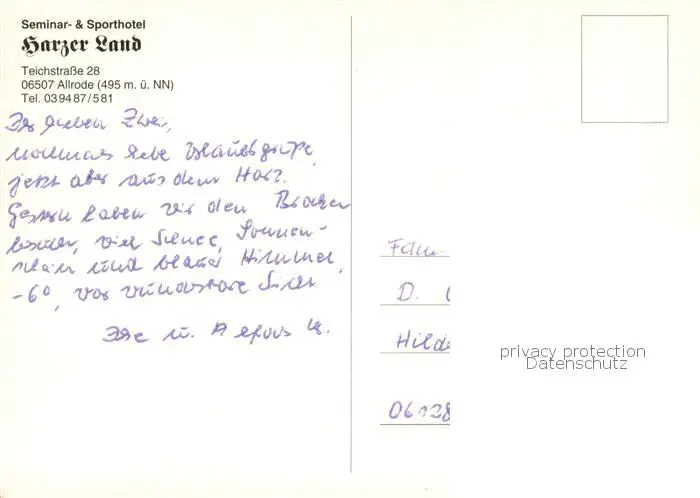 Seminar- & Sporthotel
Harzer Land
Teichstraße 28
06507 Allrode (495 m. ü. NN)
Tel. 039487/581
Ihr lieben Zwei,
nochmals liebe Urlaubsgrüße,
jetzt aber aus dem Harz.
Gestern haben wir den Brocken
viel Schnee, Sonnen-
schein und blauer Himmel,
-6°, war wunderbare Sicht
Ilse u. Alfons
Fam.
D.
Hilde
06128
privacy protection
Datenschutz